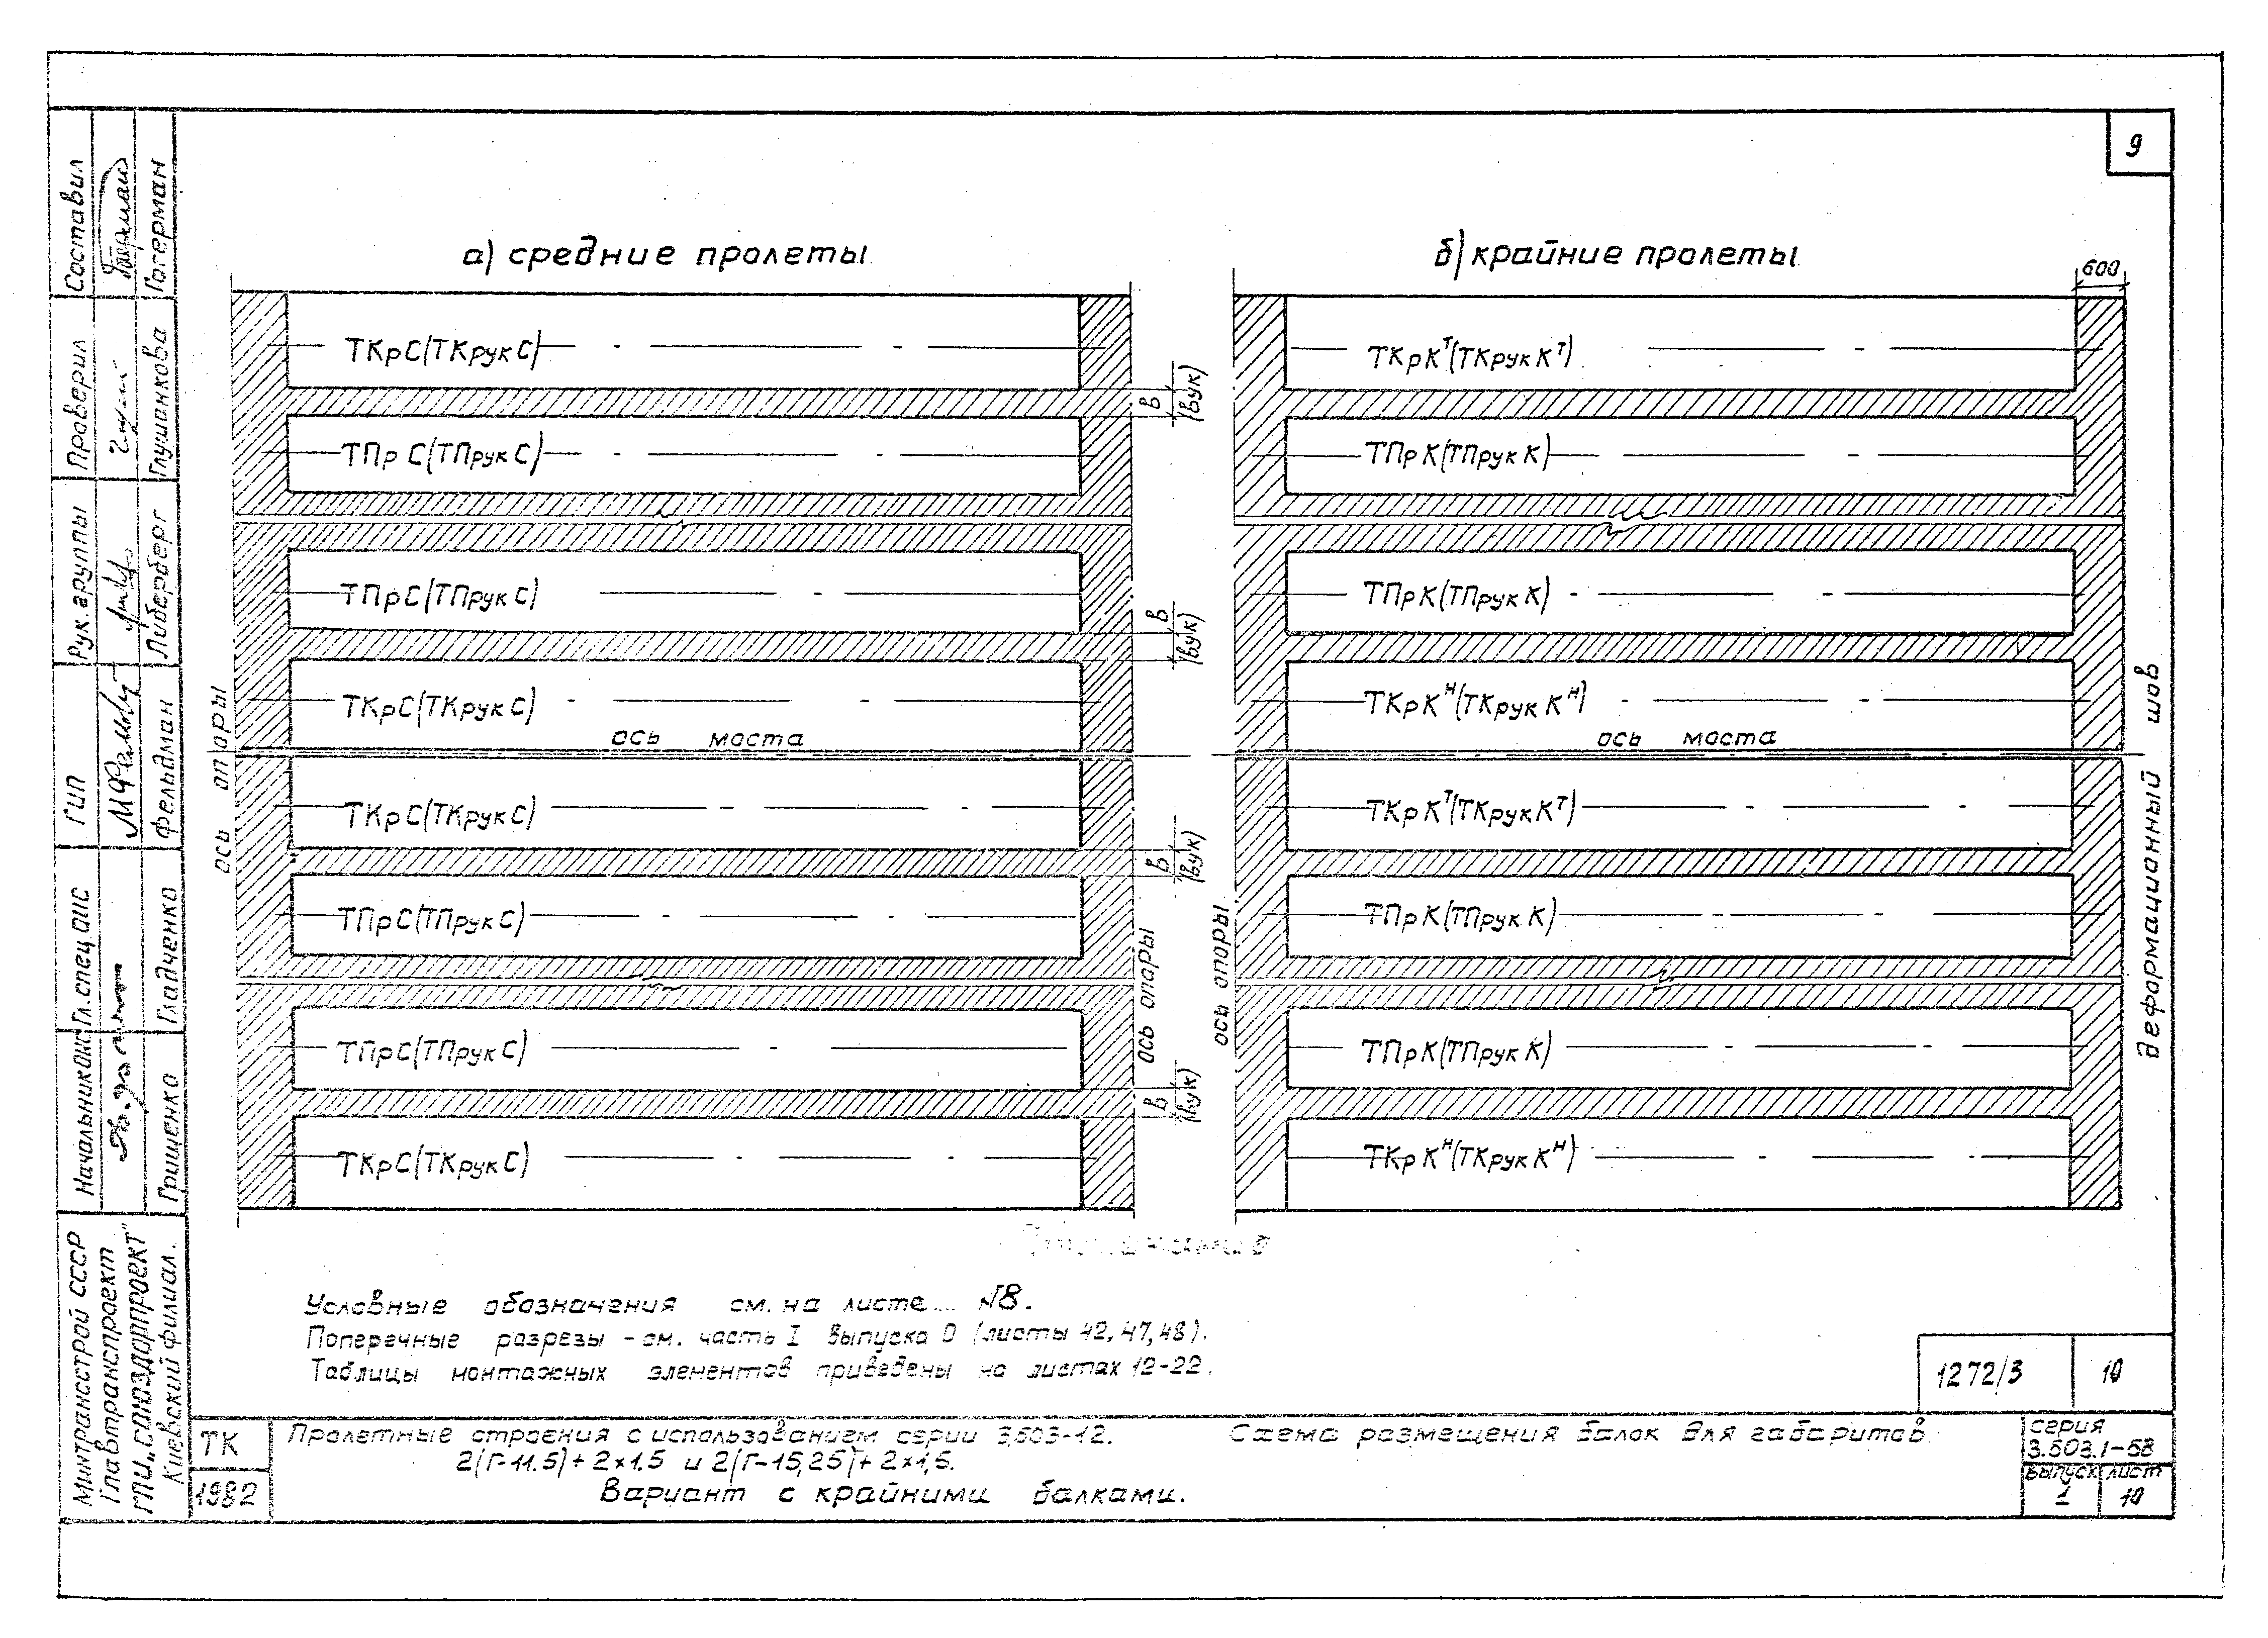 9
а) средние пролеты
б) крайние пролеты
600
ТКрС(ТКрукС)
ТПрС(ТПрукС)
ТПрС(ТПрукС)
ТКрС(ТКрукС)
ось моста
ТКрС(ТКрукС)
ТПрС(ТПрукС)
ТПрС(ТПрукС)
ТКрС(ТКрукС)
ось опоры
ось опоры
В
(Вук)
В
(Вук)
В
(Вук)
В
(Вук)
ТКрКᵀ(ТКрукКᵀ)
ТПрК(ТПрукК)
ТПрК(ТПрукК)
ТКрКᴴ(ТКрукКᴴ)
ось моста
ТКрКᵀ(ТКрукКᵀ)
ТПрК(ТПрукК)
ТПрК(ТПрукК)
ТКрКᴴ(ТКрукКᴴ)
ось опоры
деформационный шов
Условные обозначения см. на листе N8.
Поперечные разрезы - см. часть I выпуска 0 (листы 42, 47, 48).
Таблицы монтажных элементов приведены на листах 12-22.
1272/3 10
ТК
1982
Пролетные строения с использованием серии 3.503-12. Схема размещения балок для габаритов
2(Г-11.5)+2×1.5 и 2(Г-15,25)+2×1,5.
Вариант с крайними балками.
серия
3.503.1-58
выпуск лист
1 10
Составил Гогерман
Проверил Глушанкова
Рук. группы Либерберг
ГИП Фельдман
Гл. спец ОИС Гладченко
Начальник Грищенко
Минтрансстрой СССР
Главтранспроект
ГПИ „Союздорпроект"
Киевский филиал.